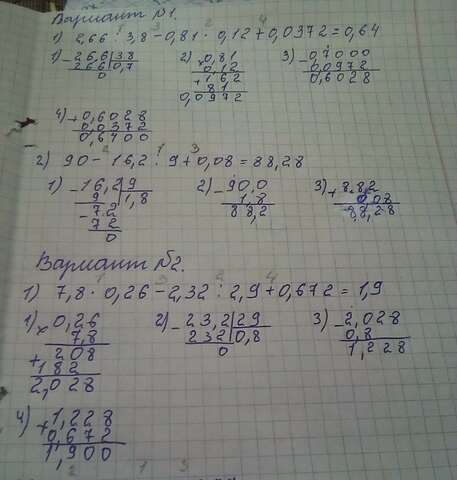 Вариант №1.
1) 2,66 : 3,8 - 0,81 · 0,12 + 0,0372 = 0,64
1) - 26,6 | 38
266 | 0,7
0
2) × 0,81
0,12
+ 162
81
0,0972
3) - 0,7000
0,0972
0,6028
4) + 0,6028
0,0372
0,6400
2) 90 - 16,2 : 9 + 0,08 = 88,28
1) - 16,2 | 9
9 | 1,8
- 72
72
0
2) - 90,0
1,8
88,2
3) + 88,2
0,08
88,28
Вариант №2.
1) 7,8 · 0,26 - 2,32 : 2,9 + 0,672 = 1,9
1) × 0,26
7,8
+ 208
182
2,028
2) - 23,2 | 29
232 | 0,8
0
3) - 2,028
0,8
1,228
4) + 1,228
0,672
1,900